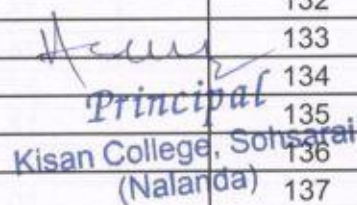 132
133
134
Principal 135
Kisan College, Sohsarai 136
(Nalanda) 137